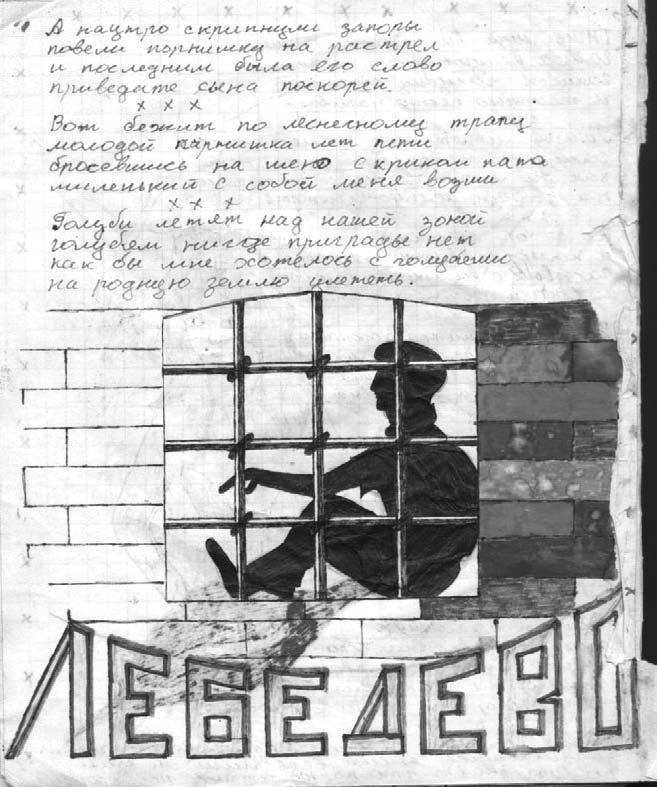 А наутро скрипнули запоры
повели парнишку на растрел
и последним была его слово
приведите сына поскорей.
х х х
Вот бежит по леснесному трапу
молодой парнишка лет пяти
бросевшись на шею с криком папа
миленький с собой меня возми
х х х
Голуби летят над нашей зоной
голубям нигде приграды нет
как бы мне хотелось с голубями
на родную землю улететь.
ЛЕБЕДЕВО